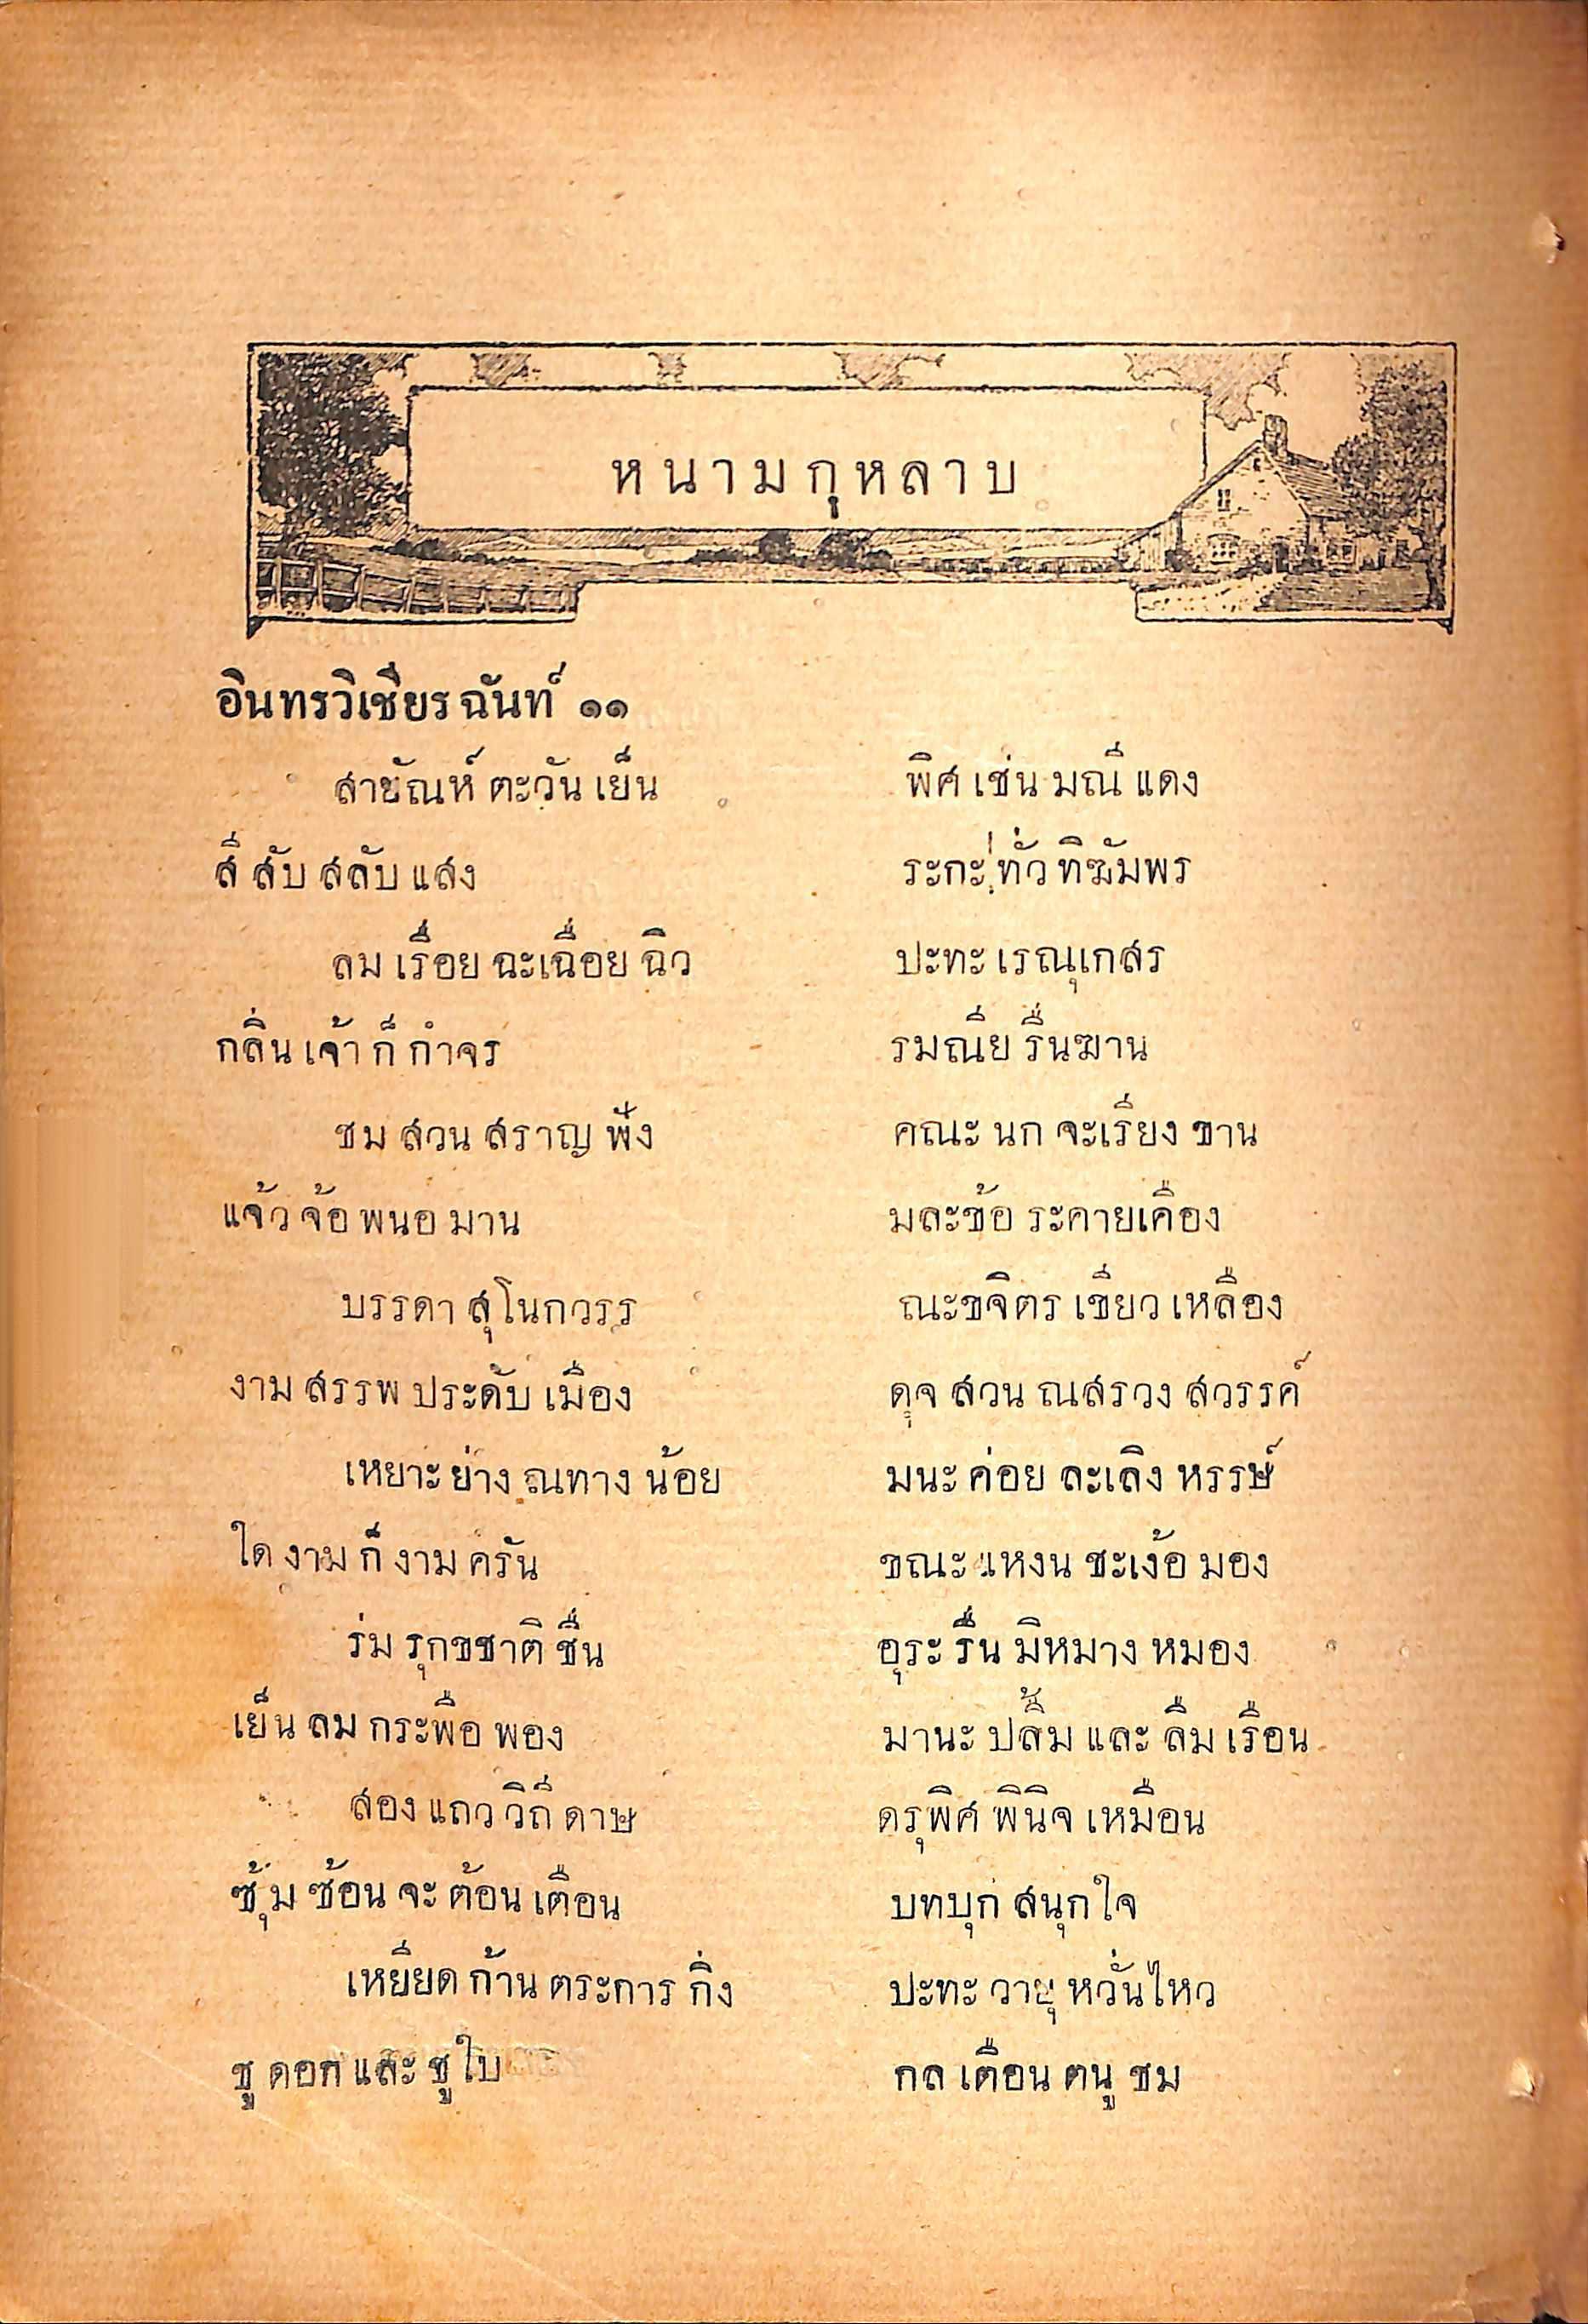 หนามกุหลาบ
อินทรวิเชียรฉันท์ ๑๑
สายัณห์ ตะวัน เย็น พิศ เช่น มณี แดง
สี สับ สลับ แสง ระกะ ทั่ว ทิฆัมพร
ลม เรื่อย ฉะเฉื่อย ฉิว ปะทะ เรณุเกสร
กลิ่น เจ้า ก็ กำจร รมณีย รื่นฆาน
ชม สวน สราญ ฟัง คณะ นก จะเรียง ขาน
แจ้ว จ้อ พนอ มาน มละข้อ ระคายเคือง
บรรดา สุโนกวรร ณะขจิตร เขียว เหลือง
งาม สรรพ ประดับ เมือง ดุจ สวน ณสรวง สวรรค์
เหยาะ ย่าง ณทาง น้อย มนะ ค่อย ละเลิง หรรษ์
ใด งาม ก็ งาม ครัน ขณะ แหงน ชะเง้อ มอง
ร่ม รุกขชาติ ชื่น อุระ รื่น มิหมาง หมอง
เย็น ลม กระพือ พอง มานะ ปลื้ม และ ลืม เรือน
สอง แถว วิถี ดาษ ดรุพิศ พินิจ เหมือน
ซุ้ม ซ้อน จะ ต้อน เตือน บทบุก สนุก ใจ
เหยียด ก้าน ตระการ กิ่ง ปะทะ วายุ หวั่นไหว
ชู ดอก และ ชู ใบ กล เตือน ตนู ชม